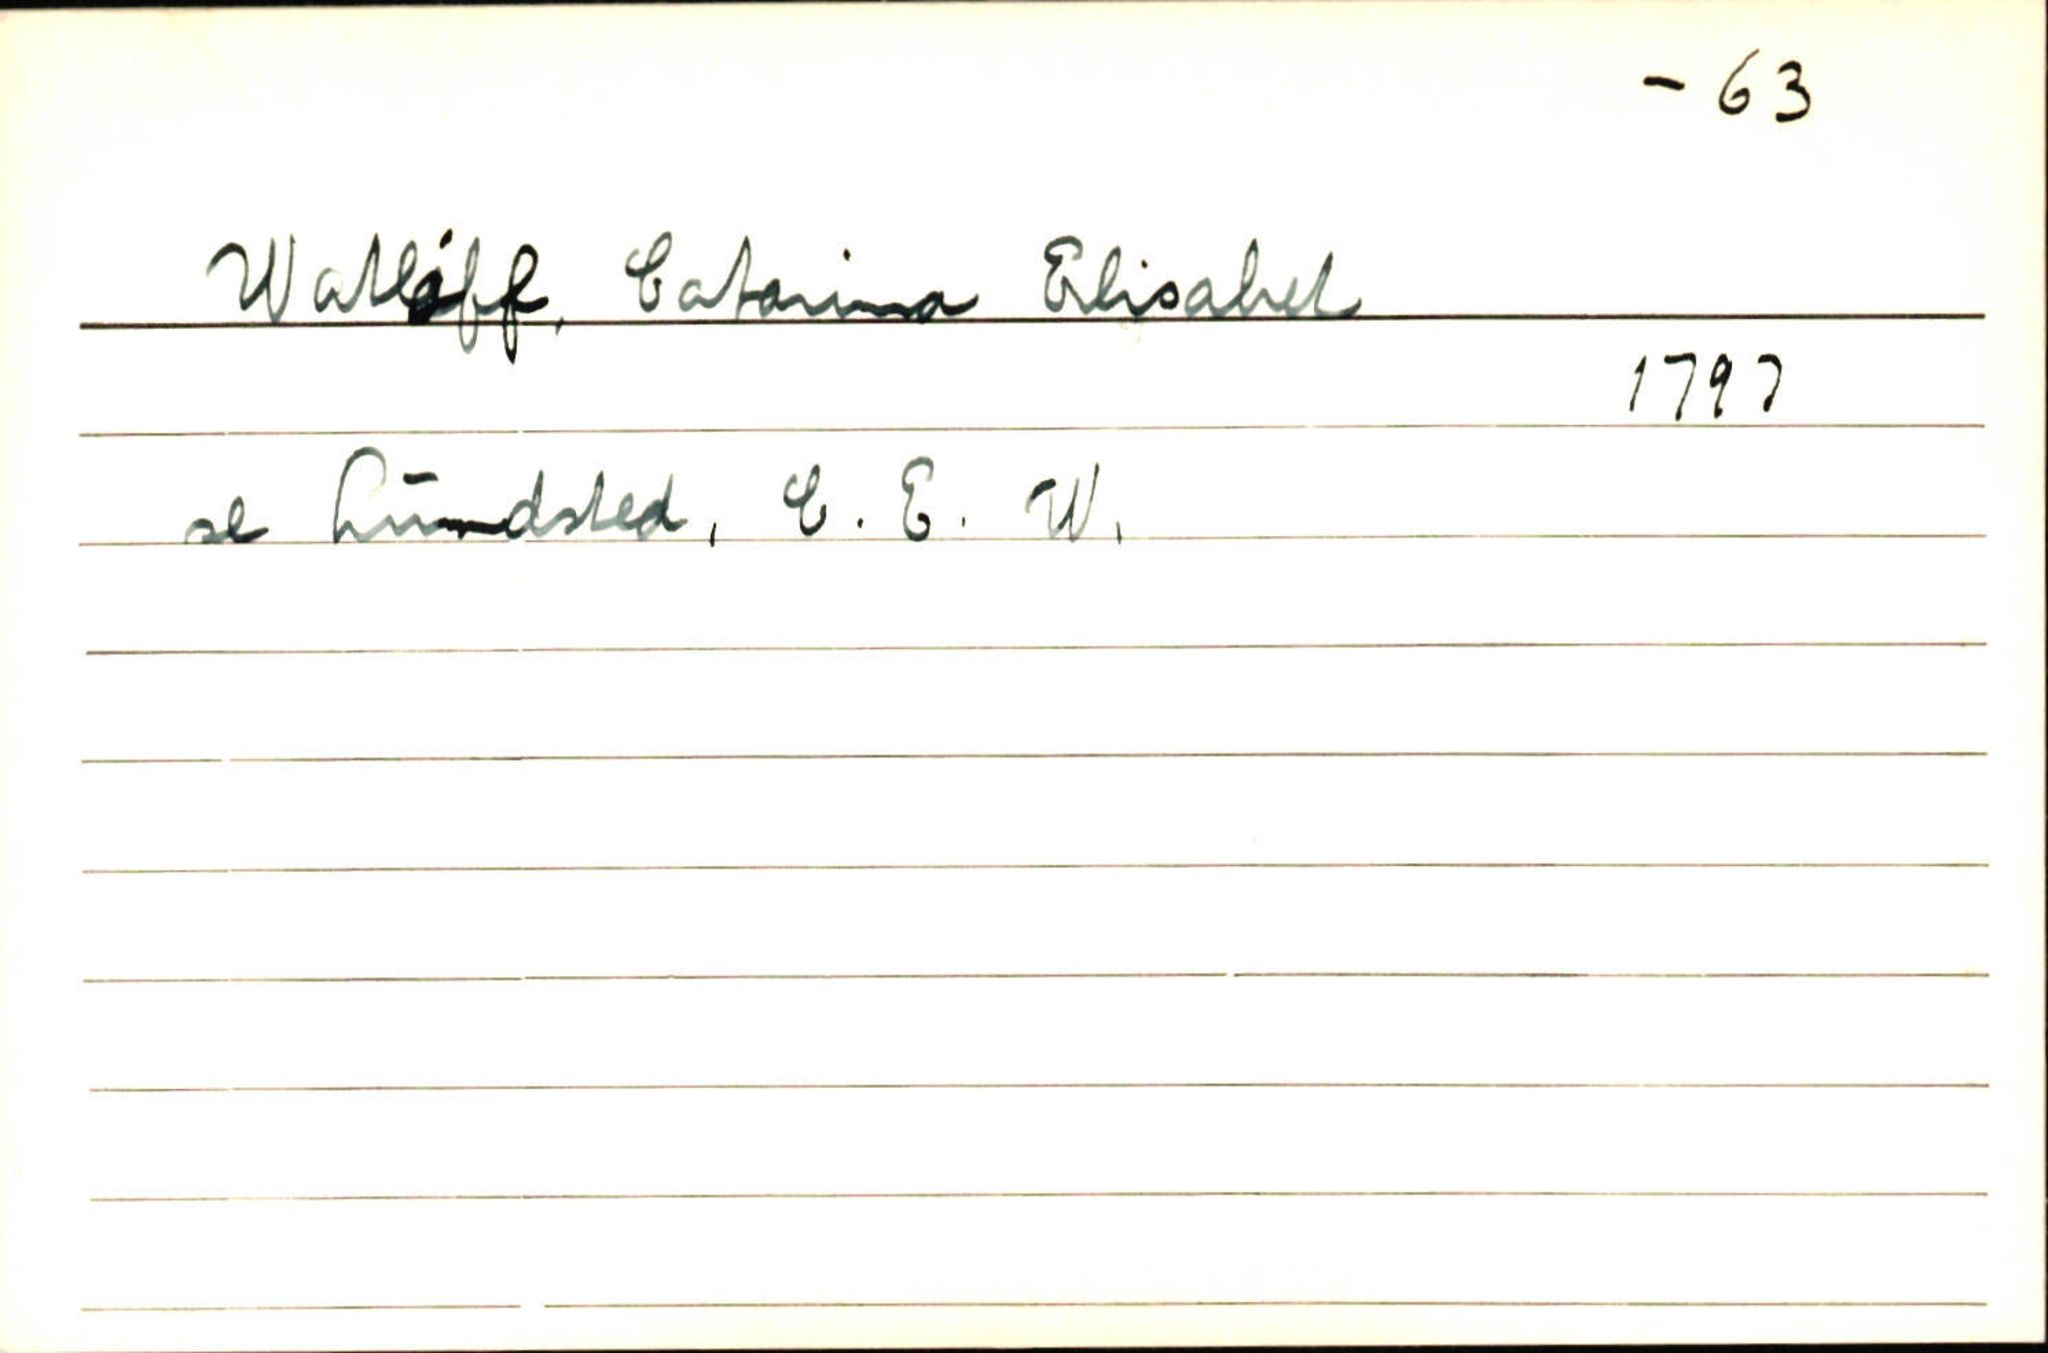 - 63
Watløff, Catarina Elisabet
1797
se Lundsted, C. E. W.